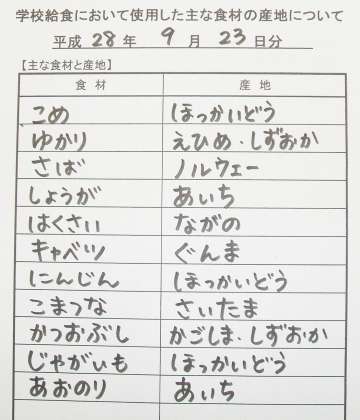 学校給食において使用した主な食材の産地について
平成 28 年 9 月 23 日分
【主な食材と産地】
食材 産地
こめ ほっかいどう
ゆかり えひめ・しずおか
さば ノルウェー
しょうが あいち
はくさい ながの
キャベツ ぐんま
にんじん ほっかいどう
こまつな さいたま
かつおぶし かごしま・しずおか
じゃがいも ほっかいどう
あおのり あいち